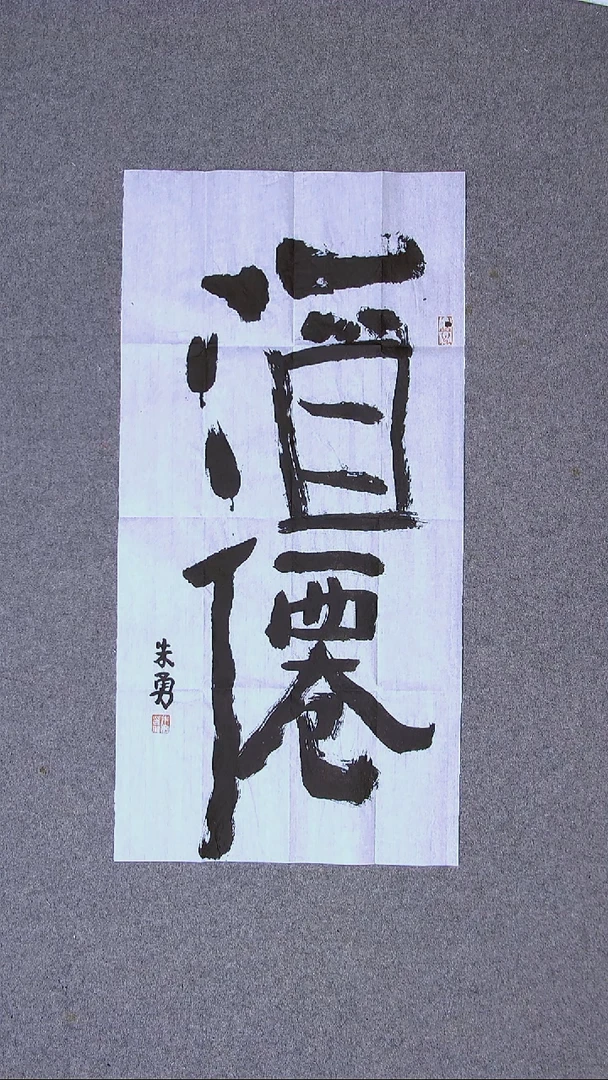 酒僊
朱勇